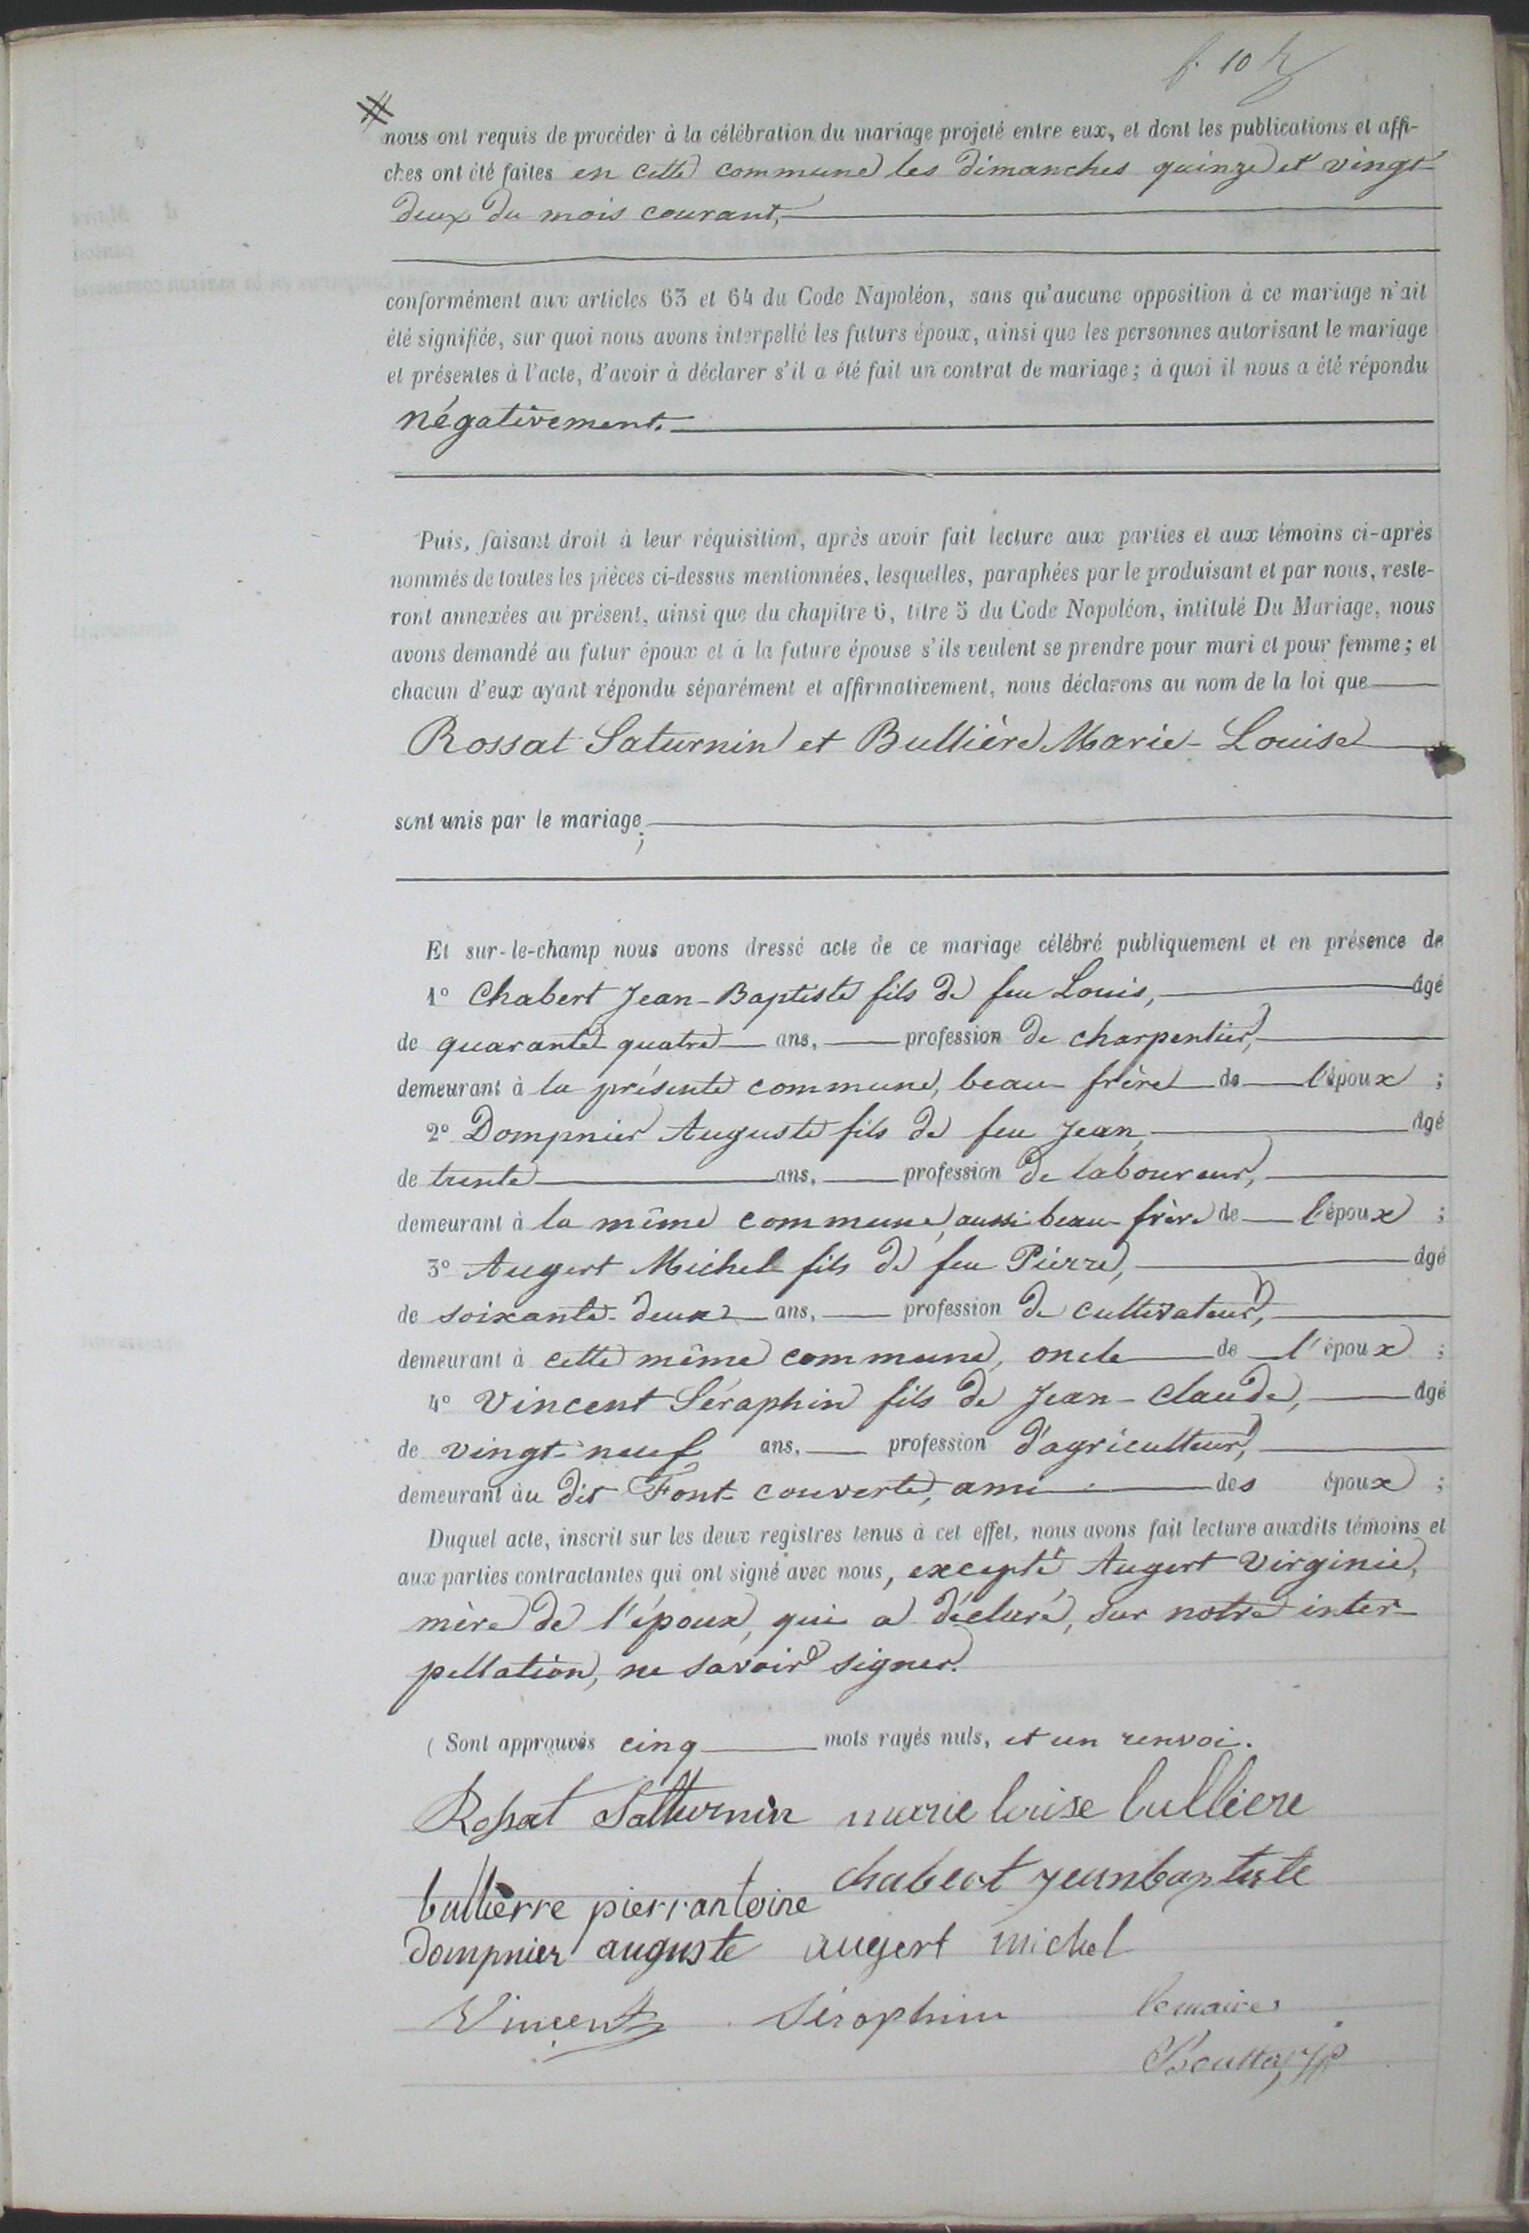 f. 10
#
nous ont requis de procéder à la célébration du mariage projeté entre eux, et dont les publications et affi-
ches ont été faites en cette commune les dimanches quinze et vingt
deux du mois courant,
conformément aux articles 63 et 64 du Code Napoléon, sans qu'aucune opposition à ce mariage n'ait
été signifiée, sur quoi nous avons interpellé les futurs époux, ainsi que les personnes autorisant le mariage
et présentes à l'acte, d'avoir à déclarer s'il a été fait un contrat de mariage; à quoi il nous a été répondu
négativement.
Puis, faisant droit à leur réquisition, après avoir fait lecture aux parties et aux témoins ci-après
nommés de toutes les pièces ci-dessus mentionnées, lesquelles, paraphées par le produisant et par nous, reste-
ront annexées au présent, ainsi que du chapitre 6, titre 5 du Code Napoléon, intitulé Du Mariage, nous
avons demandé au futur époux et à la future épouse s'ils veulent se prendre pour mari et pour femme; et
chacun d'eux ayant répondu séparément et affirmativement, nous déclarons au nom de la loi que
Rossat Saturnin et Bullière Marie-Louise
sont unis par le mariage;
Et sur-le-champ nous avons dressé acte de ce mariage célébré publiquement et en présence de
1° Chabert Jean-Baptiste fils de feu Louis, âgé
de quarante quatre ans, profession de charpentier,
demeurant à la présente commune, beau frère de l'époux ;
2° Dompnier Auguste fils de feu Jean, âgé
de trente ans, profession de laboureur,
demeurant à la même commune, aussi beau-frère de l'époux ;
3° Augert Michel fils de feu Pierre, âgé
de soixante-deux ans, profession de cultivateur,
demeurant à cette même commune, oncle de l'époux ;
4° Vincent Séraphin fils de Jean-Claude, âgé
de vingt-neuf ans, profession d'agriculteur,
demeurant àu dit Font-couverte, ami des époux ;
Duquel acte, inscrit sur les deux registres tenus à cet effet, nous avons fait lecture auxdits témoins et
aux parties contractantes qui ont signé avec nous, excepté Augert Virginie,
mère de l'époux, qui a déclaré, sur notre inter-
pellation, ne savoir signer.
(Sont approuvés cinq mots rayés nuls, et un renvoi.
Rossat Satturnin marie louise bulliere
chabert jeanbaptiste
bullièrre pierrantoine
dompnier auguste augert michel
Vincent Séraphin le maire